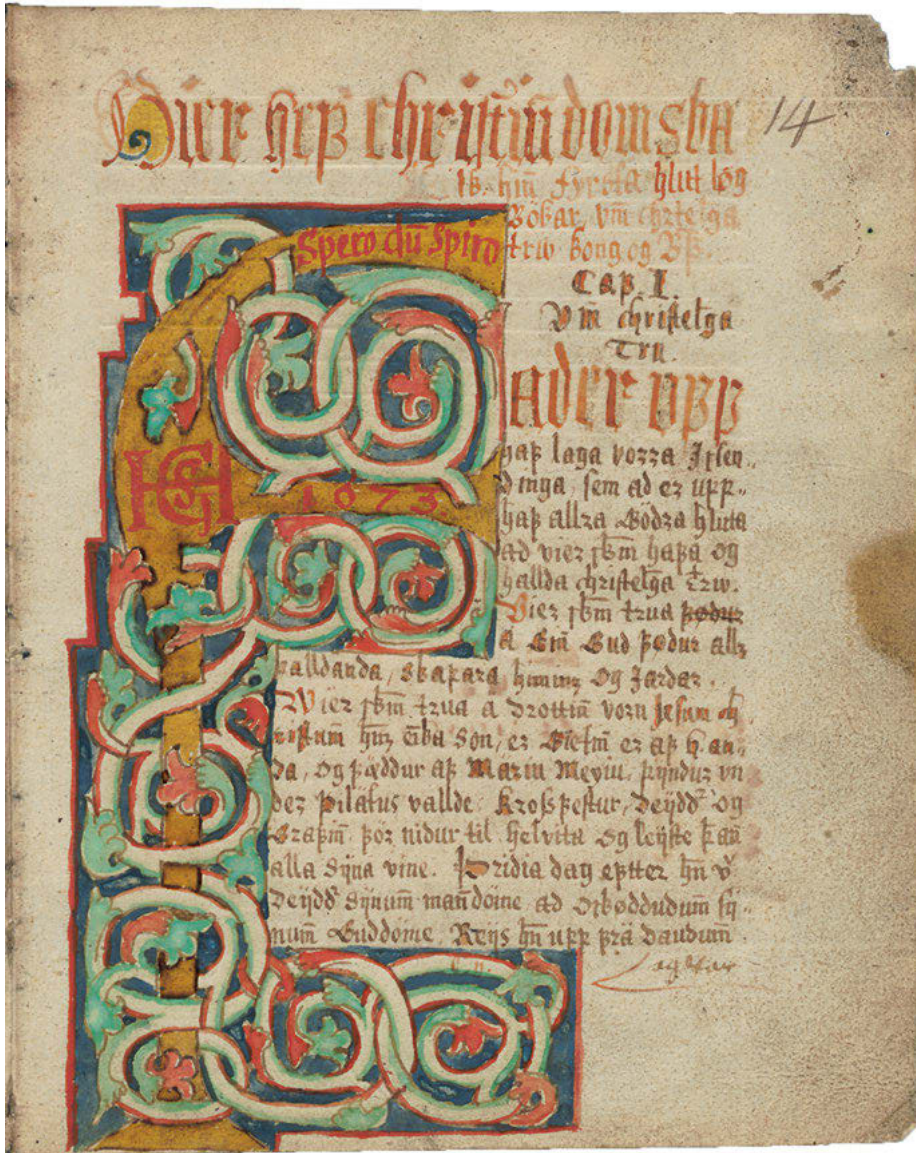 Hier hefst christindomsba
14
lk. hin Fyrsta hlut lög
Bókar, vm christelga
trw kong og Bp.
Spero dū Spiro
Cap. I.
Vm christelga
Tru
ader upp
HGH
1673
haf laga vorra Jslen„
dinga, sem ad er upp„
haf allra Godra hluta
ad vier skm hafa og
hallda christelga Trw.
Vier skm trua födur
a Ein Gud födur all
valldanda, skapara himins og Jardar.
Wier skm trua a Drottin vorn Jesum Ch
ristum hns eika Son, er Gietin er af h. an„
da, og fæddur af Mariu Meyiu, pijndur vn
der Pilatus vallde, Krossfestur, deÿdd og
Grafin, för nidur til helvita og leÿste þan
alla sÿna vine. Þridia dag eptter hn v
deÿdd sÿnum mandöme ad Oskoddudum sÿ„
num Guddome Reÿs hn upp frá daudum